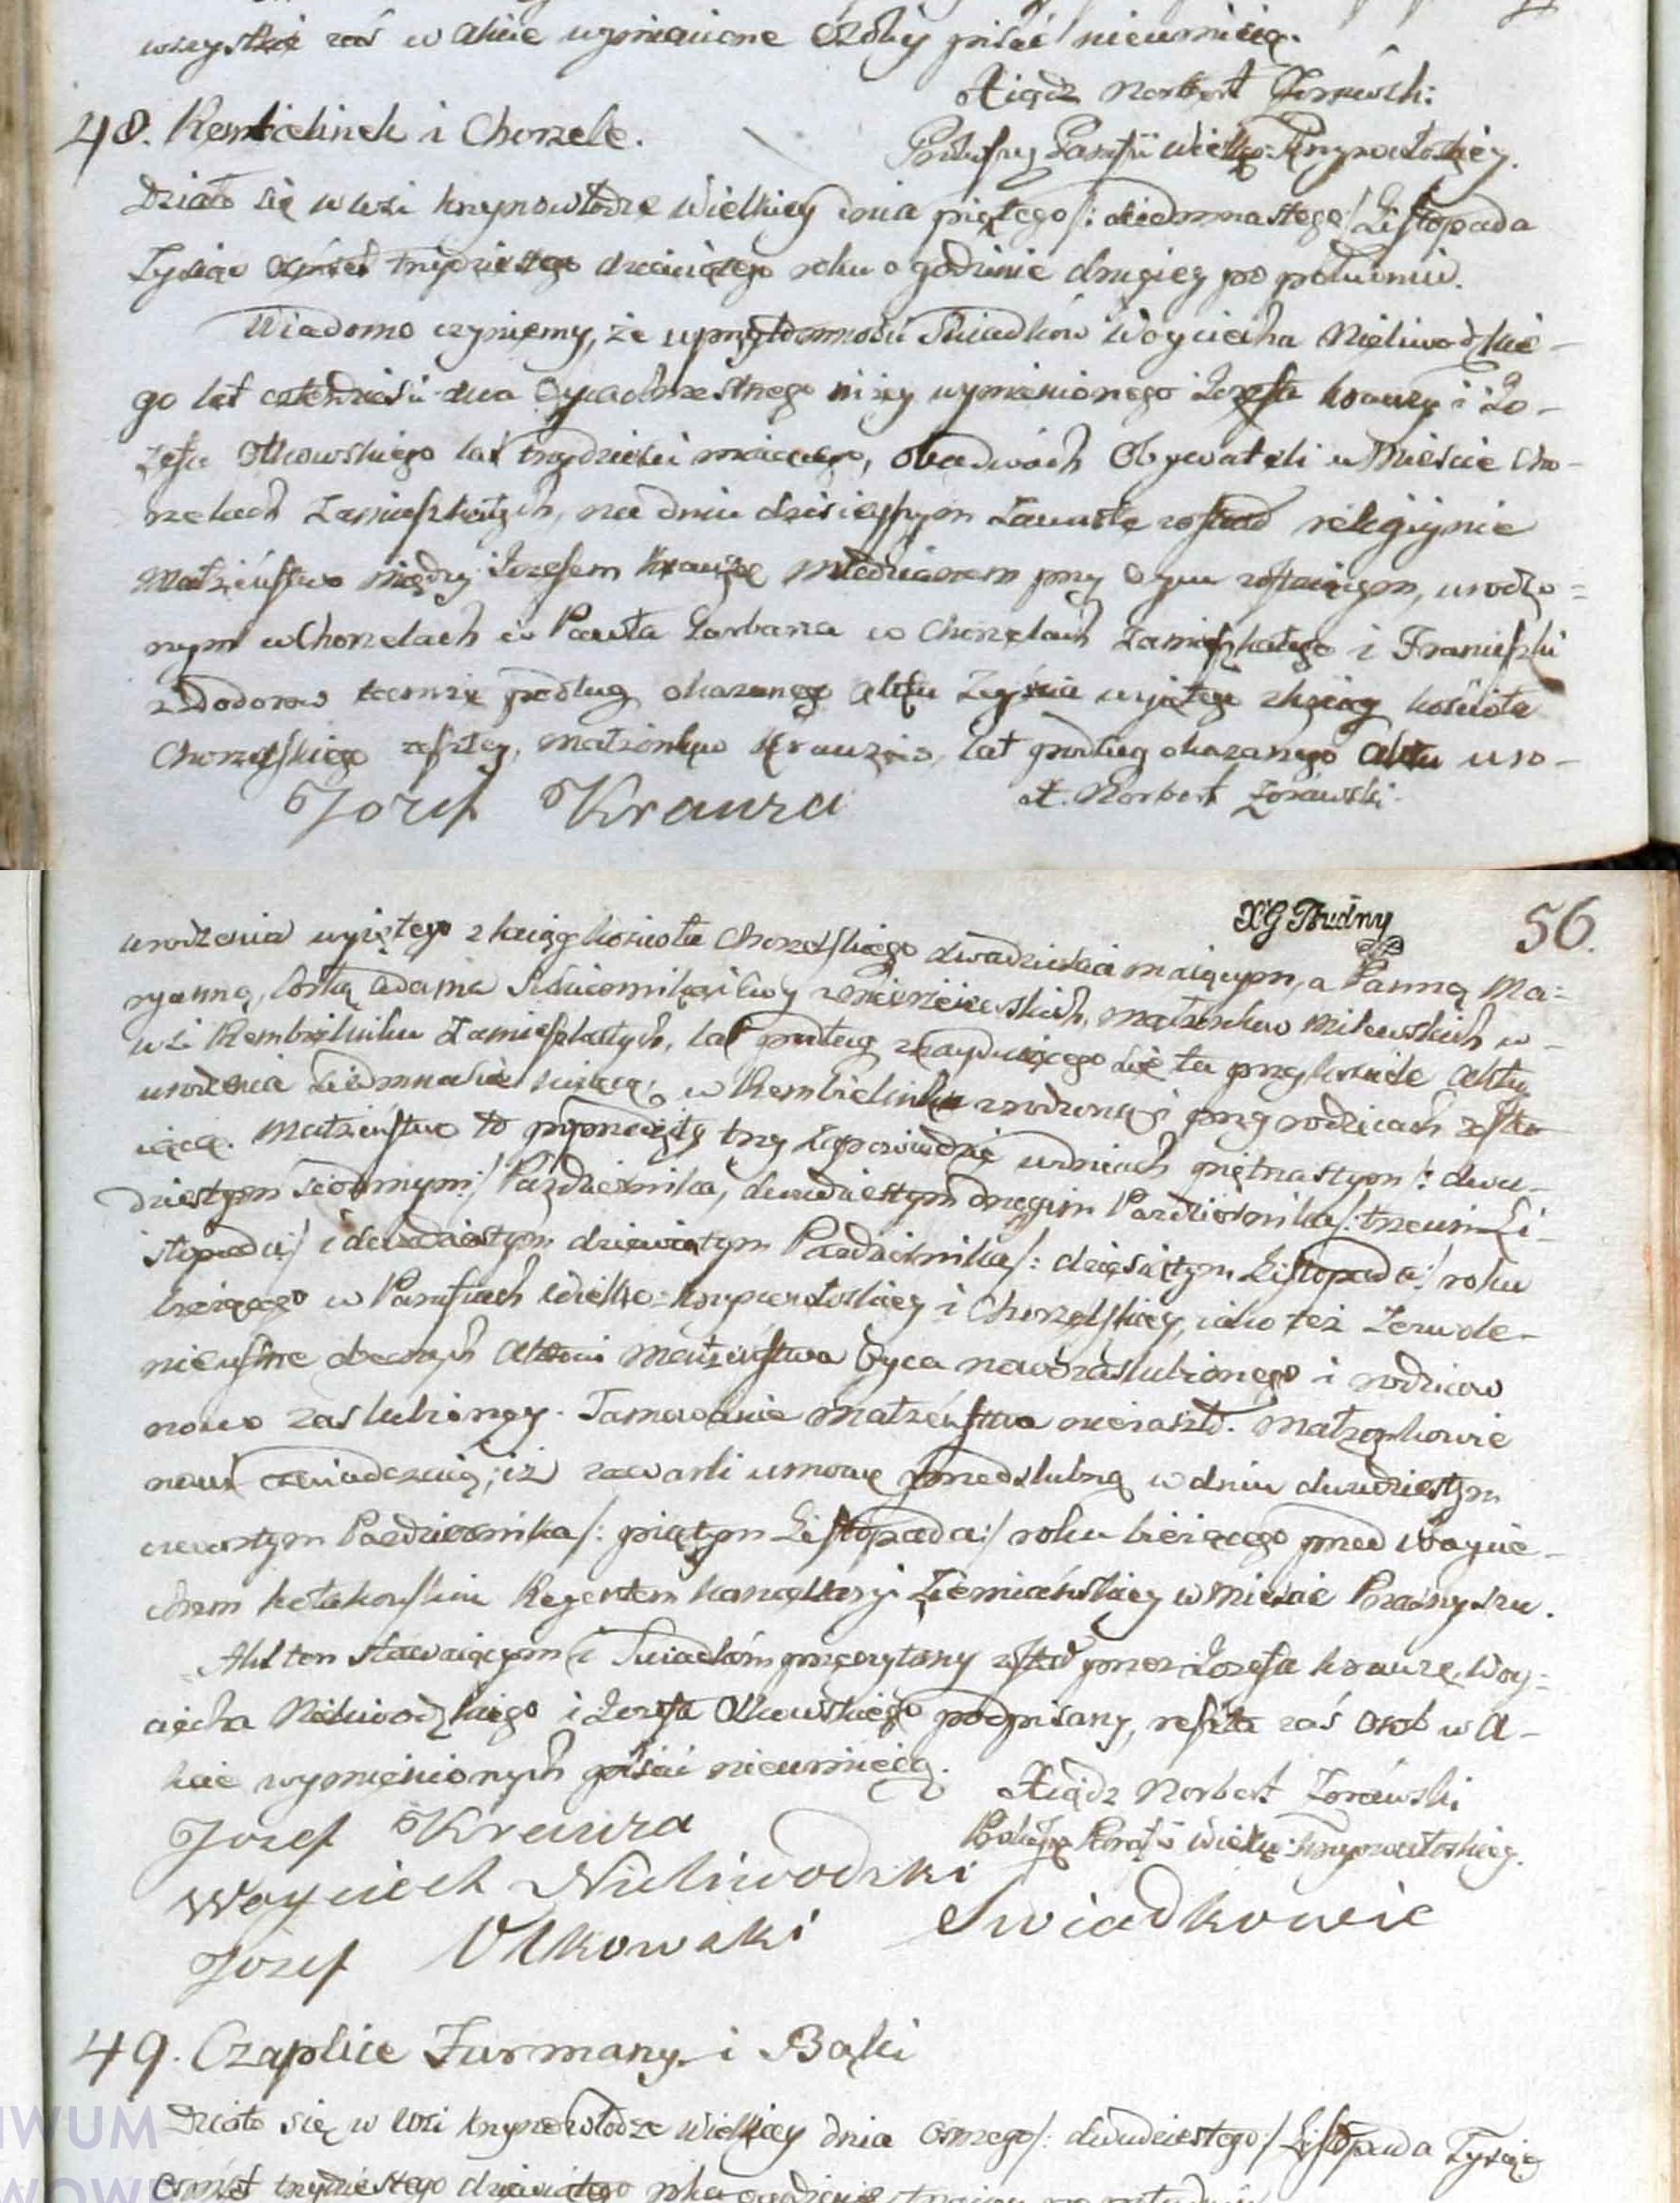 wszystkie zaś w akcie wymienione Osoby pisać nieumieią.
Xiądz Norbert Żorawski:
48. Rembielinek i Chorzele.
Proboszcz Parafii Wielko-Krzynowłoskiey.
Działo się w wsi Krzynowłodze Wielkiey dnia piątego /: siedmnastego :/ Listopada
Tysiąc ośmset trzydziestego dziewiątego roku o godzinie drugiey po południu.
Wiadomo czyniemy, że w przytomności Swiadków Woyciecha Nieliwodzkie-
go lat czterdzieści dwa Oyca chrzestnego niżey wymienionego Jozefa Krauzy i Jo-
zefa Olkowskiego lat trzydzieści maiącego, obudwóch Obywateli w Mieście Cho-
rzelach Zamieszkałych, na dniu dzisieyszym Zawarte zostało religiynie
Małżeństwo między Jozefem Krauzą Młodzianem przy Oycu zostaiącym, urodzo-
nym w Chorzelach z Pawła Garbarza w Chorzelach Zamieszkałego i Franciszki
z Dodorow tamże podług okazanego Aktu Zeyścia wyiętego z ksiąg kościoła
Chorzelskiego zeszłey, małżonków Krauzów, lat podług okazanego Aktu uro-
Jozef Krauza
X. Norbert Żorawski.
XG Trudny
56.
urodzenia wyiętego z ksiąg kościoła Chorzelskiego dwadzieścia maiącym, a Panną Ma-
ryanną, córką Adama i Ewy małżonków Milewskich w
wsi Rembielinku Zamieszkałych, lat podług znayduiącego się tu przy kościele Aktu
urodzenia siedmnaście maiącą, w Rembielinku urodzoną i przy rodzicach zosta-
iącą. Małżeństwo to poprzedziły trzy zapowiedzie w dniach piętnastym /: dwu-
dziestym siódmym :/ Pazdziernika, dwudziestym drugim Pazdziernika /: trzecim Li-
stopada :/ i dwudziestym dziewiątym Pazdziernika /: dziesiątym Listopada :/ roku
bieżącego w Parafiach Wielko-Krzynowłoskiey i Chorzelskiey, iako też Zezwole-
nie ustne obecnych Aktowi Małżeństwa Oyca nowozaślubionego i rodziców
nowo zaślubioney. Tamowanie Małżeństwa nie zaszło. Małżonkowie
nowi oświadczaią, iż zawarli umowę przedślubną w dniu dwudziestym
czwartym Pazdziernika /: piątym Listopada :/ roku bieżącego przed Woycie-
chem Kołakowskim Regentem Kancellaryi Ziemiańskiey w Mieście Przasnyszu.
Akt ten stawaiącym i Swiadkóm przeczytany został przez Jozefa Krauzę, Woy-
ciecha Nieliwodzkiego i Jozefa Olkowskiego podpisany, reszta zaś Osob w A-
kcie wymienionych pisać nieumieią.
Xiądz Norbert Żorawski
Jozef Krauza
Proboszcz Parafii Wielko-Krzynowłoskiey.
Woyciech Nieliwodzki
Swiadkowie
Jozef Olkowski
49. Czaplice Furmany i Bąki
Działo się w Wsi Krzynowłodze Wielkiey dnia Osmego /: dwudziestego :/ Listopada Tysiąc
Osmset trzydziestego dziewiątego roku o godzinie